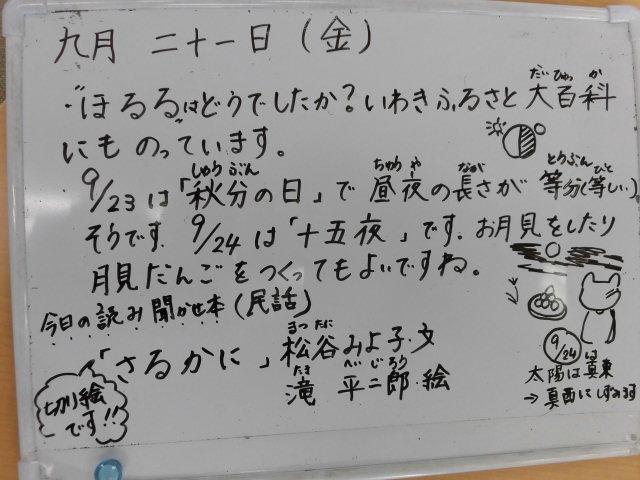 九月 二十一日(金)
"ほるる"はどうでしたか?いわきふるさと大百科
だいひゃっか
にものっています。
しゅうぶん ちゅうや なが とうぶん ひと
9/23は「秋分の日」で昼夜の長さが等分(等しい)
そうです.9/24は「十五夜」です.お月見をしたり
月見だんごをつくってもよいですね。
今日の読み聞かせ本(民話)
まつたに
「さるかに」松谷みよ子・文
たき へいじろう
滝 平二郎・絵
切り絵
です!!
9/24
太陽は真東
→真西にしずみます